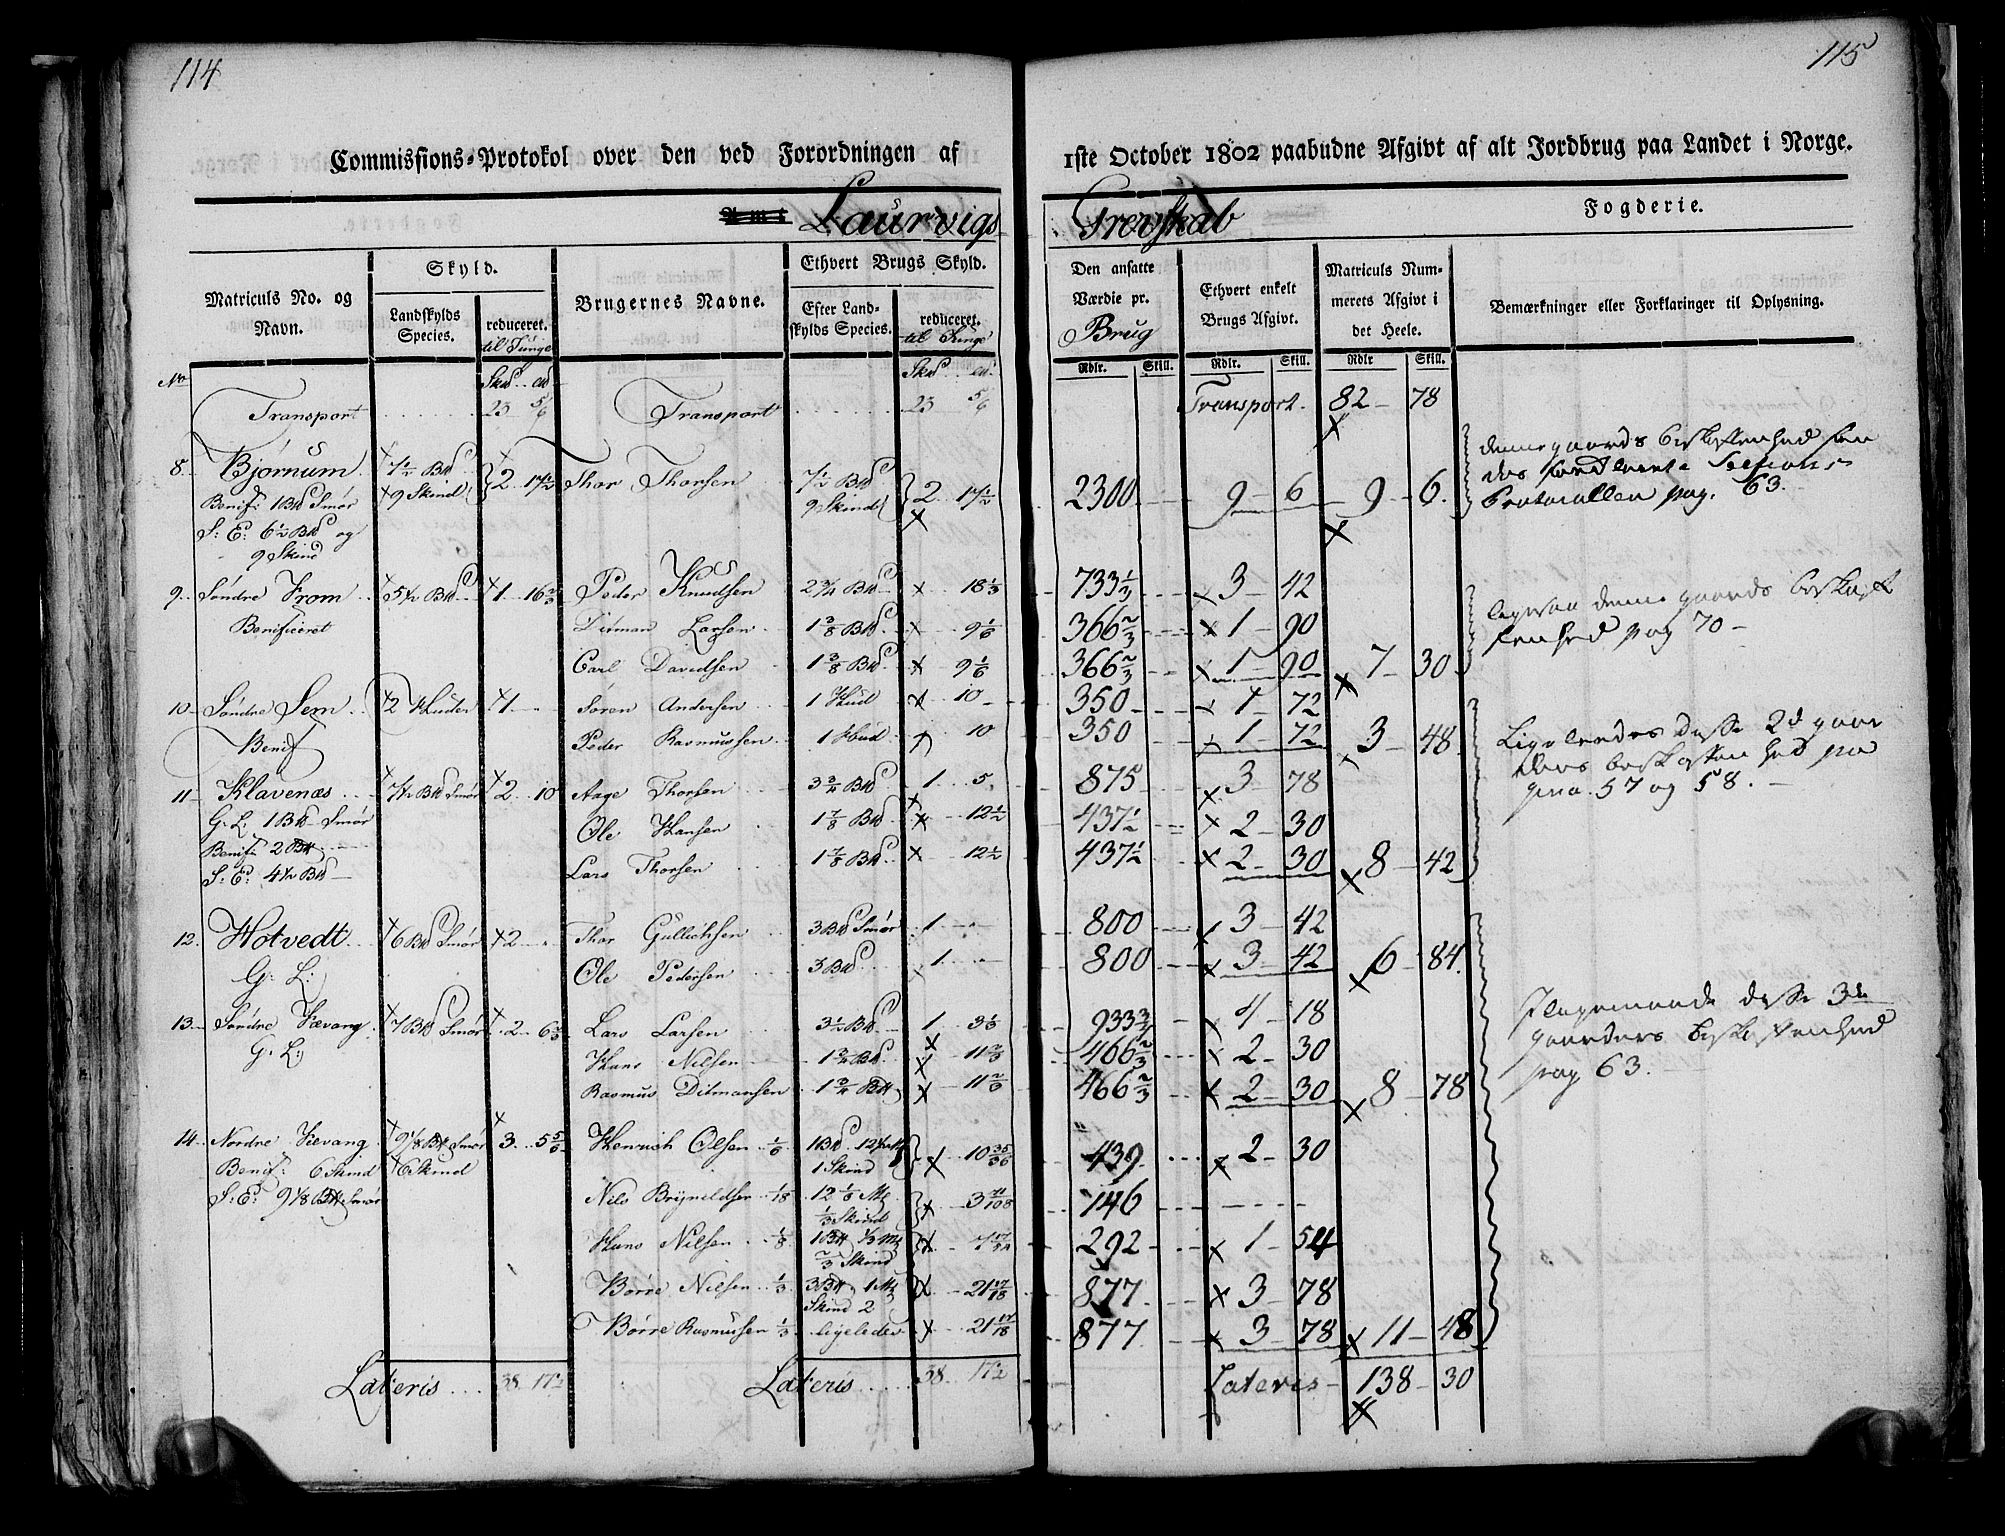 114
Commissions-Protokol over den ved Forordningen af
Amt Laurvigs
Matriculs No. og Navn.
Skyld.
Landskylds Species.
reduceret.
til Tunge
Brugernes Navne.
Ethvert Brugs Skyld.
Efter Landskylds Species.
reduceret.
til Tunge
No
Transport 23 5/6 Transport 23 5/6
8. Bjørnum 7 1/2 Bd 2 17 1/2 Thor Thorsen 7 1/2 Bd 2 17 1/2
Benif: 1 Bd Smør 9 Skind 9 Skind
S: E: 6 1/2 Bd og
9 Skind
9. Søndre From 5 1/2 Bd 1 16 2/3 Peder Knudsen 2 3/4 Bd 18 1/3
Benificeret Ditman Larsen 1 3/8 Bd 9 1/6
Carl Davidsen 1 3/8 Bd 9 1/6
10 Søndre Sem 2 Huder 1 Søren Andersen 1 Hud 10
Benif Peder Rasmussen 1 Hud 10
11 Klavenæs 7 1/2 Bd Smør 2 10 Aage Thorsen 3 3/4 Bd 1 5
G: L: 1 Bd Smør Ole Hansen 1 7/8 Bd 12 1/2
Benif: 2 Bd
S: E: 4 1/2 Bd Lars Thorsen 1 7/8 Bd 12 1/2
12. Hotvedt 6 Bd Smør 2 Thor Gullichsen 3 Bd Smør 1
G: L: Ole Pedersen 3 Bd 1
13. Søndre Fævang 7 Bd Smør 2 6 2/3 Lars Larsen 3 1/2 Bd 1 3 1/3
G: L: Hans Nilsen 1 3/4 Bd 11 2/3
Rasmus Ditmansen 1 3/4 Bd 11 2/3
14. Nordre Fævang 9 1/8 Bd Smør 3 5 5/6 Henrich Olsen 1/6 1 Bd 10 35/36
Benif: 6 Skind 6 Skind 1 Skind
S: E: 9 1/8 Bd Smør Nils Brynildsen 1/18 12 1/6 Mk 3 71/108
1/3 Skind
Hans Nilsen 1 Bd 1/3 Mk 7 17/54
2/3 Skind
Børre Nilsen 1/3 3 Bd 1 Mk 21 17/18
Skind 2
Børre Rasmussen 1/3 ligeledes 21 17/18
Lateris 38 17 1/2 Lateris 38 17 1/2
115
1ste October 1802 paabudne Afgivt af alt Jordbrug paa Landet i Norge.
Grevskab Fogderie.
Den ansatte Værdie pr.
Brug
Ethvert enkelt Brugs Afgivt.
Matriculs Nummerets Afgivt i det Heele.
Bemærkninger eller Forklaringer til Oplysning.
Rdlr. Skill. Rdlr. Skill. Rdlr Skill.
Transport 82 78
2300 9 6 9 6
denne gaards beskaffenhed
pag. 63.
733 1/3 3 42
366 2/3 1 90
366 2/3 1 90 7 30
ligesaa denne gaards beskaf
fenhed pag 70
350 1 72
350 1 72 3 48
Ligeledes disse 2de gaar
ders beskaffenhed
pag. 57 og 58.
875 3 78
437 1/2 2 30
437 1/2 2 30 8 42
800 3 42
800 3 42 6 84
933 3/4 4 18
466 2/3 2 30
466 2/3 2 30 8 78
disse 3de
gaarders beskaffenhed
pag 63.
439 2 30
146
292 1 54
877 3 78
877 3 78 11 48
Lateris 138 30